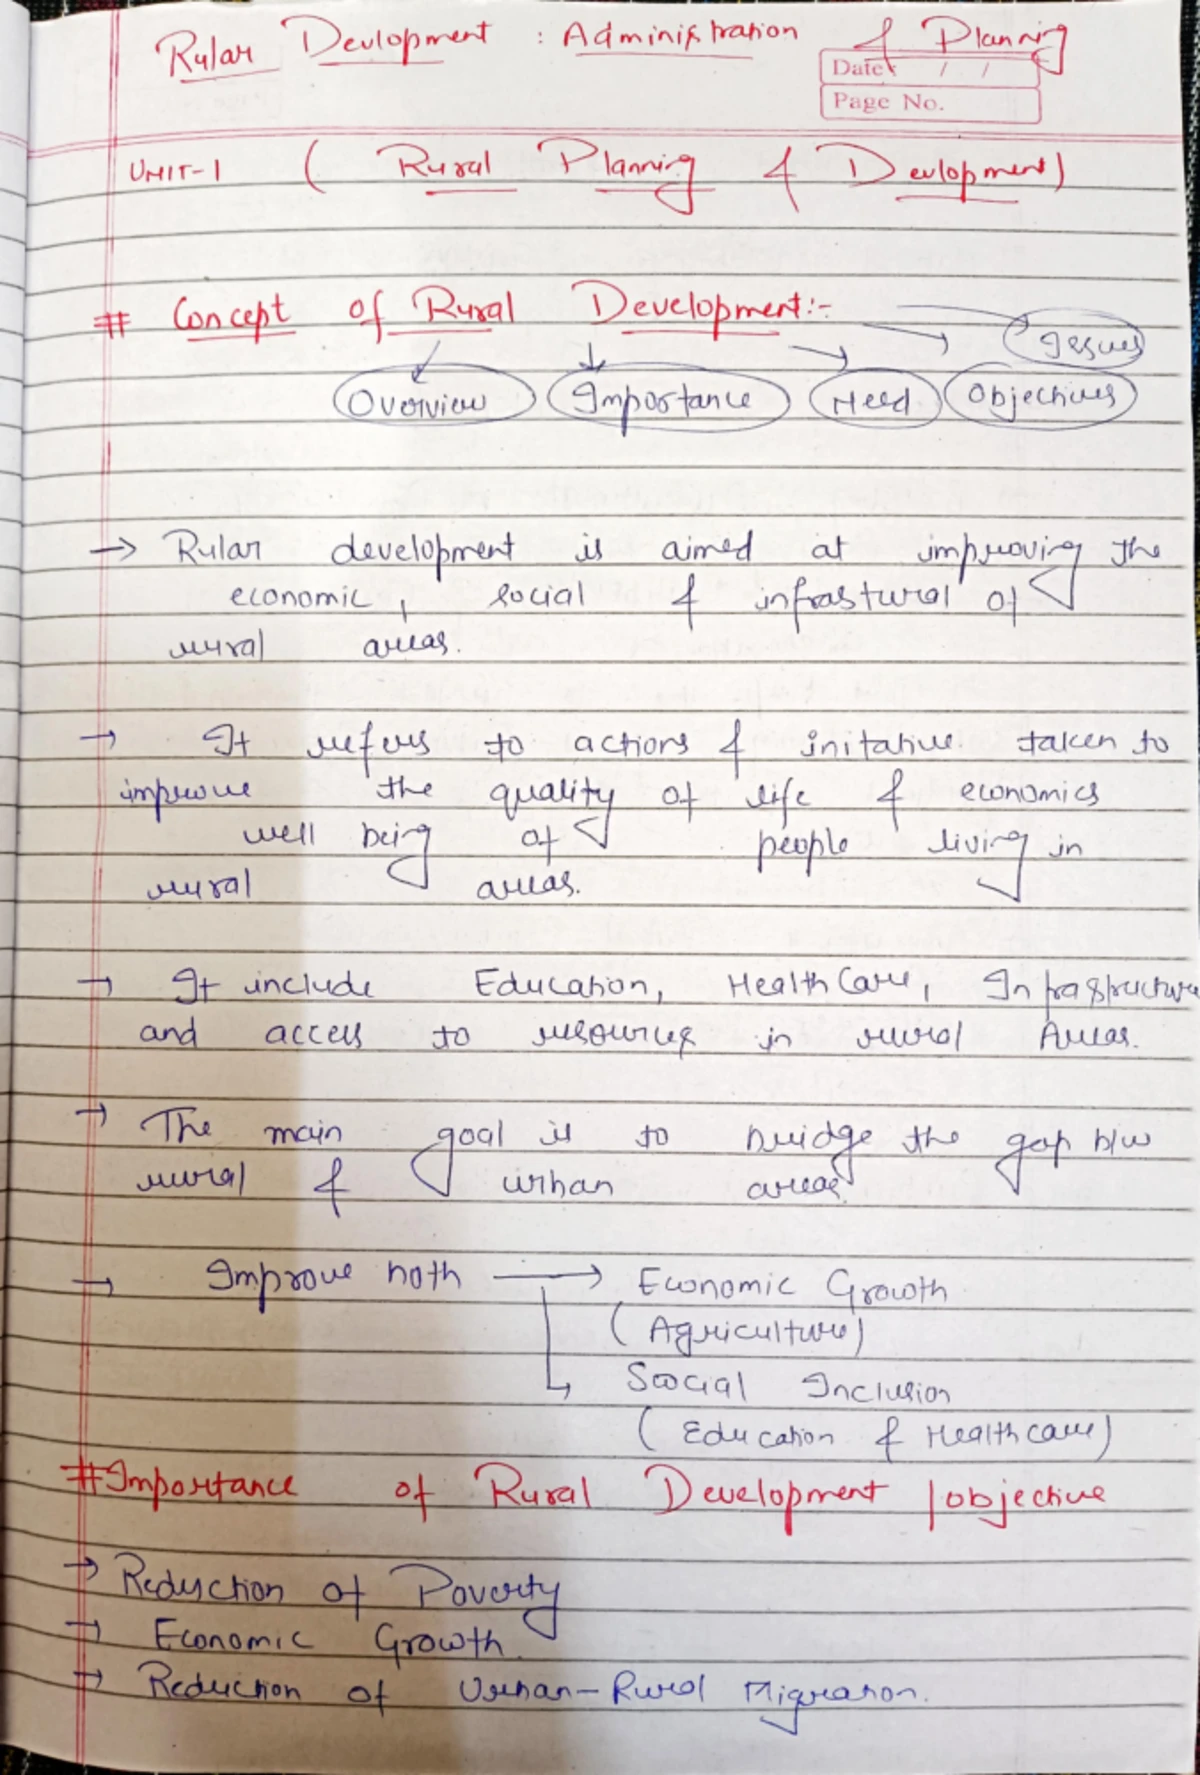 Rular Devlopment : Administration & Planning
Date: / /
Page No.
UNIT-1 ( Rural Planning & Devlopment)
# Concept of Rural Development:-
Issues
Overview Importance Need Objectives
→ Rular development is aimed at improving the
economic, social & infrastural of
rural areas.
→ It refers to actions & initative taken to
improve the quality of life & economics
well being of people living in
rural areas.
→ It include Education, HealthCare, Infrastructure
and access to resources in rural Areas.
→ The main goal is to bridge the gap b/w
rural & urban areas.
→ Improve both → Economic Growth
(Agriculture)
↳ Soocial Inclusion
(Education & Healthcare)
# Importance of Rural Development / objective
→ Reduction of Poverty
→ Economic Growth.
→ Reduction of Urban-Rural Migration.